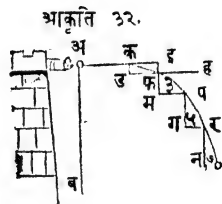 आकृति ३२.
अ क इ ह
उ फ ३ प
म
ग ५ र
न ७
ब